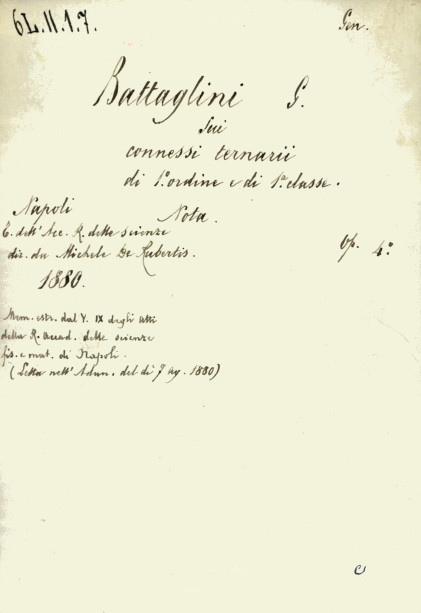 6L.11.1.7.
Gen.
Battaglini G.
Sui
connessi ternarii
di 1.º ordine e di 1.ª classe.
Nota.
Napoli
T. dell' Acc. R. delle scienze
dir. da Michele De Rubertis.
Op. 4.º
1880.
Mem. estr. dal V. IX degli Atti
della R. Accad. delle scienze
fis. e mat. di Napoli.
(Letta nell' Adun. del dì 7 ag. 1880)